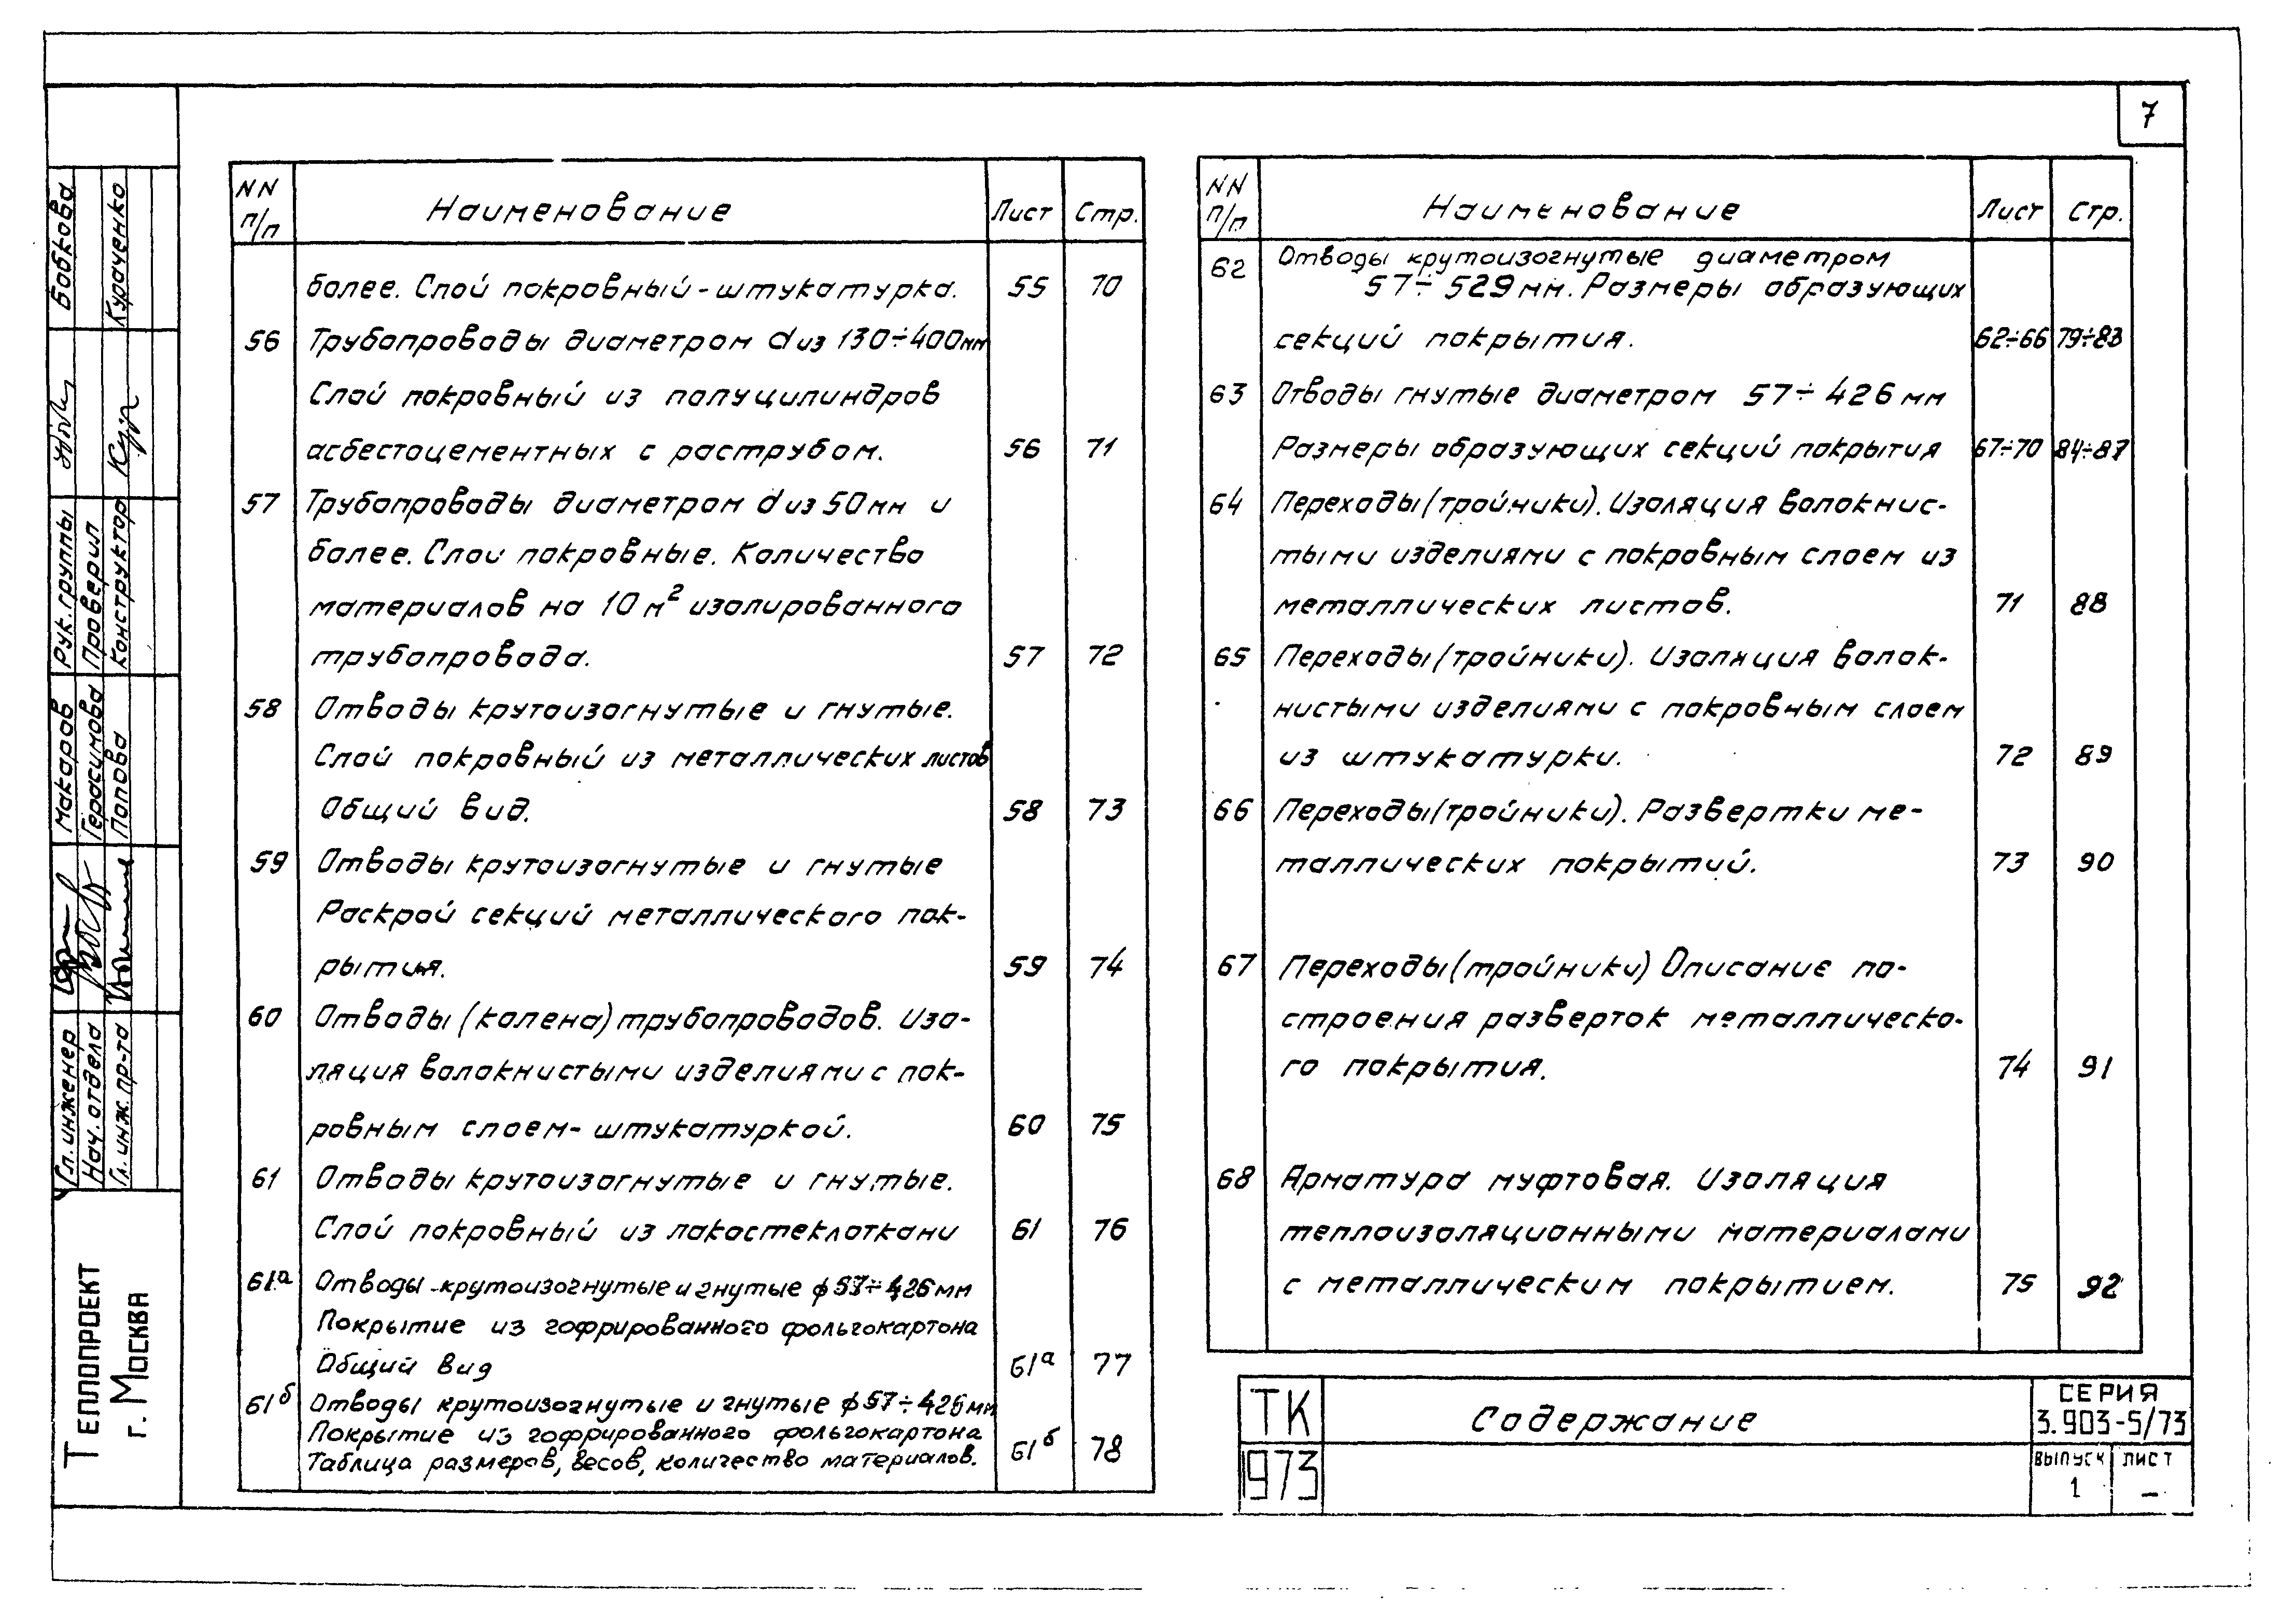 7
NN п/п Наименование Лист Стр.
более. Слой покровный - штукатурка. 55 70
56 Трубопроводы диаметром dиз 130÷400мм
Слой покровный из полуцилиндров
асбестоцементных с раструбом. 56 71
57 Трубопроводы диаметром dиз 50мм и
более. Слои покровные. Количество
материалов на 10 м² изолированного
трубопровода. 57 72
58 Отводы крутоизогнутые и гнутые.
Слой покровный из металлических листов
Общий вид. 58 73
59 Отводы крутоизогнутые и гнутые
Раскрой секций металлического пок-
рытия. 59 74
60 Отводы (колена) трубопроводов. Изо-
ляция волокнистыми изделиями с пок-
ровным слоем - штукатуркой. 60 75
61 Отводы крутоизогнутые и гнутые.
Слой покровный из лакостеклоткани 61 76
61а Отводы крутоизогнутые и гнутые ф 57÷426 мм
Покрытие из гофрированного фольгокартона
Общий вид 61а 77
61б Отводы крутоизогнутые и гнутые ф 57÷426 мм
Покрытие из гофрированного фольгокартона
Таблица размеров, весов, количество материалов. 61б 78
NN п/п Наименование Лист Стр.
62 Отводы крутоизогнутые диаметром
57÷529 мм. Размеры образующих
секций покрытия. 62÷66 79÷83
63 Отводы гнутые диаметром 57÷426 мм
Размеры образующих секций покрытия 67÷70 84÷87
64 Переходы (тройники). Изоляция волокнис-
тыми изделиями с покровным слоем из
металлических листов. 71 88
65 Переходы (тройники). Изоляция волок-
нистыми изделиями с покровным слоем
из штукатурки. 72 89
66 Переходы (тройники). Развертки ме-
таллических покрытий. 73 90
67 Переходы (тройники) Описание по-
строения разверток металлическо-
го покрытия. 74 91
68 Арматура муфтовая. Изоляция
теплоизоляционными материалами
с металлическим покрытием. 75 92
ТК
1973
Содержание
СЕРИЯ
3.903-5/73
ВЫПУСК ЛИСТ
1 —
Гл. инженер Макаров Рук. группы Бобкова
Нач. отдела Герасимова Проверил
Гл. инж. пр-та Попова Конструктор Кураченко
ТЕПЛОПРОЕКТ
г. МОСКВА